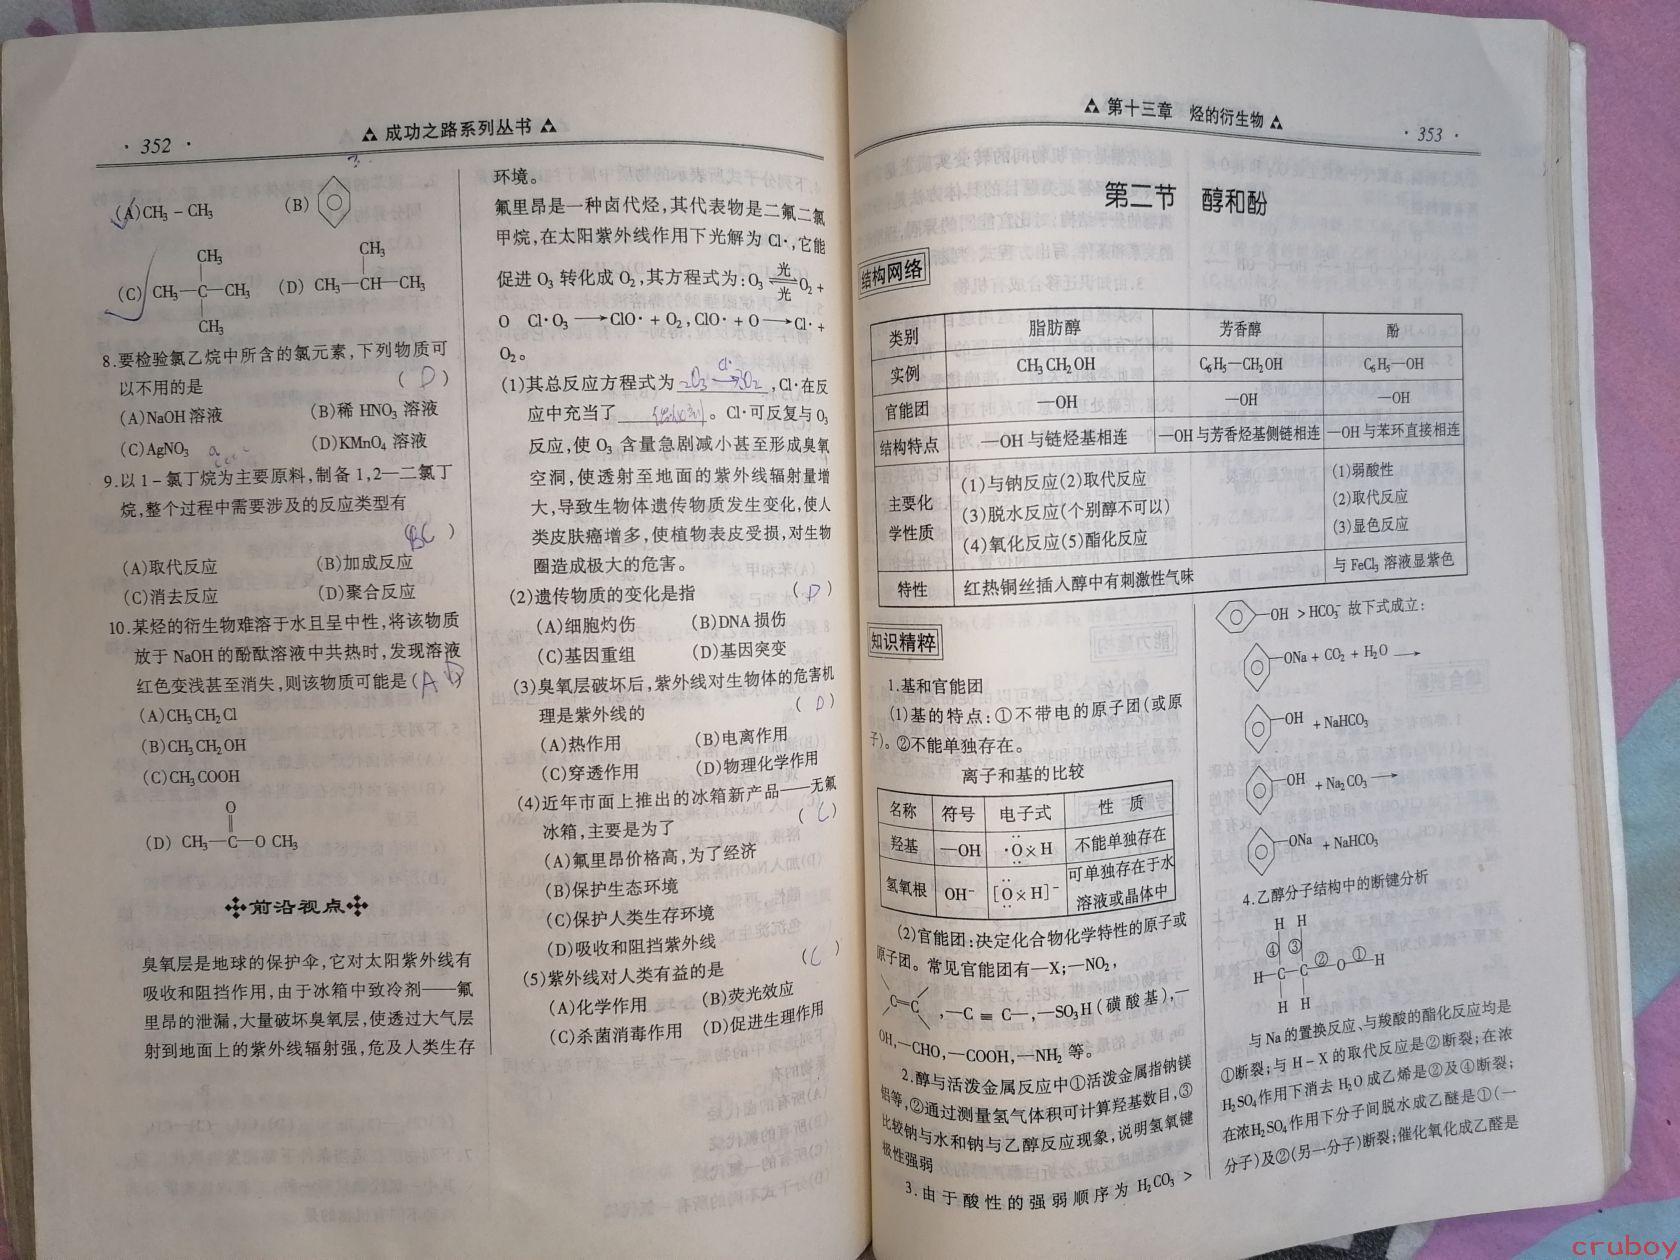 · 352 ·
成功之路系列丛书
(A)CH₃－CH₃
(B)
CH₃
(C) CH₃—C—CH₃
CH₃
CH₃
(D) CH₃—CH—CH₃
8.要检验氯乙烷中所含的氯元素,下列物质可
以不用的是 ( D )
(A)NaOH 溶液
(B)稀 HNO₃ 溶液
(C)AgNO₃
(D)KMnO₄ 溶液
9.以 1－氯丁烷为主要原料,制备 1,2—二氯丁
烷,整个过程中需要涉及的反应类型有
BC )
(A)取代反应
(B)加成反应
(C)消去反应
(D)聚合反应
10.某烃的衍生物难溶于水且呈中性,将该物质
放于 NaOH 的酚酞溶液中共热时,发现溶液
红色变浅甚至消失,则该物质可能是(A D)
(A)CH₃CH₂Cl
(B)CH₃CH₂OH
(C)CH₃COOH
O
‖
(D) CH₃—C—O CH₃
前沿视点
臭氧层是地球的保护伞,它对太阳紫外线有
吸收和阻挡作用,由于冰箱中致冷剂——氟
里昂的泄漏,大量破坏臭氧层,使透过大气层
射到地面上的紫外线辐射强,危及人类生存
环境。
氟里昂是一种卤代烃,其代表物是二氟二氯
甲烷,在太阳紫外线作用下光解为 Cl·,它能
促进 O₃ 转化成 O₂,其方程式为:O₃ ⇌光光 O₂ +
O Cl·O₃ ⟶ClO· + O₂, ClO· + O ⟶Cl· +
O₂。
(1)其总反应方程式为 2O₃ Cl·⟶ 3O₂ ,Cl·在反
应中充当了 催化剂 。Cl·可反复与 O₃
反应,使 O₃ 含量急剧减小甚至形成臭氧
空洞,使透射至地面的紫外线辐射量增
大,导致生物体遗传物质发生变化,使人
类皮肤癌增多,使植物表皮受损,对生物
圈造成极大的危害。
(2)遗传物质的变化是指 ( D )
(A)细胞灼伤
(B)DNA 损伤
(C)基因重组
(D)基因突变
(3)臭氧层破坏后,紫外线对生物体的危害机
理是紫外线的 ( D )
(A)热作用
(B)电离作用
(C)穿透作用
(D)物理化学作用
(4)近年市面上推出的冰箱新产品——无氟
冰箱,主要是为了 ( C )
(A)氟里昂价格高,为了经济
(B)保护生态环境
(C)保护人类生存环境
(D)吸收和阻挡紫外线
(5)紫外线对人类有益的是 ( C )
(A)化学作用
(B)荧光效应
(C)杀菌消毒作用
(D)促进生理作用
第十三章 烃的衍生物
· 353 ·
第二节 醇和酚
结构网络
类别 脂肪醇 芳香醇 酚
实例 CH₃CH₂OH C₆H₅—CH₂OH C₆H₅—OH
官能团 —OH —OH —OH
结构特点 —OH 与链烃基相连 —OH 与芳香烃基侧链相连 —OH 与苯环直接相连
主要化
学性质
(1)与钠反应(2)取代反应
(3)脱水反应(个别醇不可以)
(4)氧化反应(5)酯化反应
(1)弱酸性
(2)取代反应
(3)显色反应
特性 红热铜丝插入醇中有刺激性气味 与 FeCl₃ 溶液显紫色
知识精粹
1.基和官能团
(1)基的特点:①不带电的原子团(或原
子)。②不能单独存在。
离子和基的比较
名称 符号 电子式 性 质
羟基 —OH ·O×H 不能单独存在
氢氧根 OH⁻ [O×H]⁻ 可单独存在于水
溶液或晶体中
(2)官能团:决定化合物化学特性的原子或
原子团。常见官能团有—X;—NO₂,
C=C ,—C ≡ C—,—SO₃H(磺酸基),—
OH,—CHO,—COOH,—NH₂ 等。
2.醇与活泼金属反应中①活泼金属指钠镁
铝等,②通过测量氢气体积可计算羟基数目,③
比较钠与水和钠与乙醇反应现象,说明氢氧键
极性强弱
3.由于酸性的强弱顺序为 H₂CO₃ >
—OH > HCO₃⁻ 故下式成立:
—ONa + CO₂ + H₂O ⟶
—OH + NaHCO₃
—OH + Na₂CO₃ ⟶
—ONa + NaHCO₃
4.乙醇分子结构中的断键分析
H H
④ ③
H—C—C ② O ① H
H H
与 Na 的置换反应、与羧酸的酯化反应均是
①断裂;与 H－X 的取代反应是②断裂;在浓
H₂SO₄作用下消去 H₂O 成乙烯是②及④断裂;
在浓H₂SO₄作用下分子间脱水成乙醚是①(一
分子)及②(另一分子)断裂;催化氧化成乙醛是
cruboy